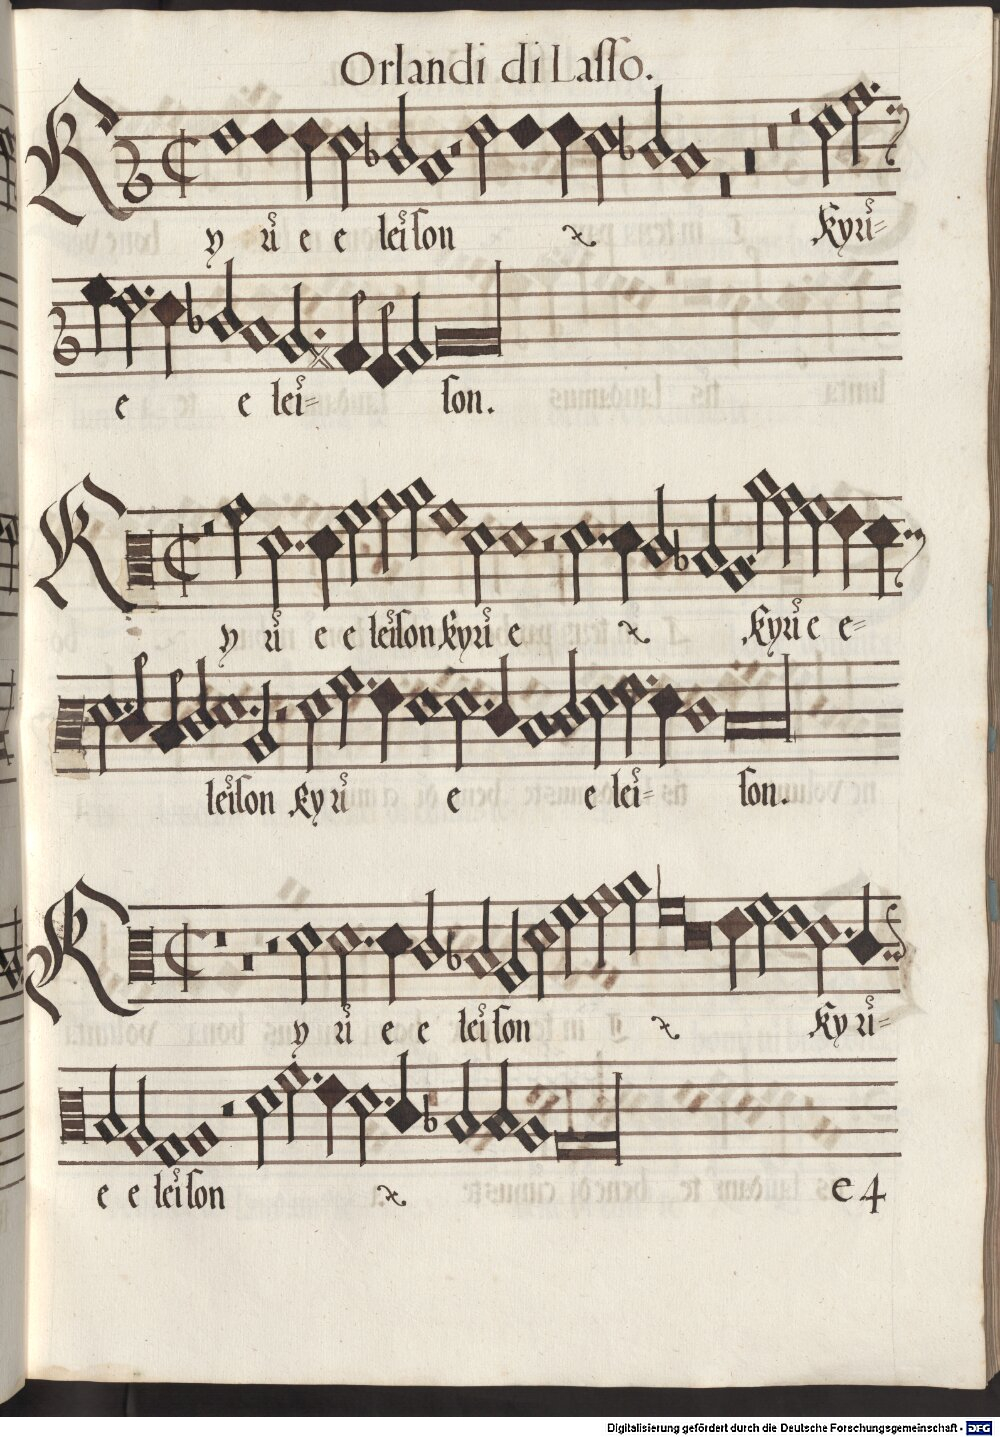 Orlandi di Lasso.
Kyri e e leison ꝛ Kyri=
e e lei= son.
Kyri e e leison kyri e ꝛ Kyri e e=
leison Kyri e e lei= son.
Kyri e e leison ꝛ Kyri=
e e leison ꝛ
e 4
Digitalisierung gefördert durch die Deutsche Forschungsgemeinschaft - DFG